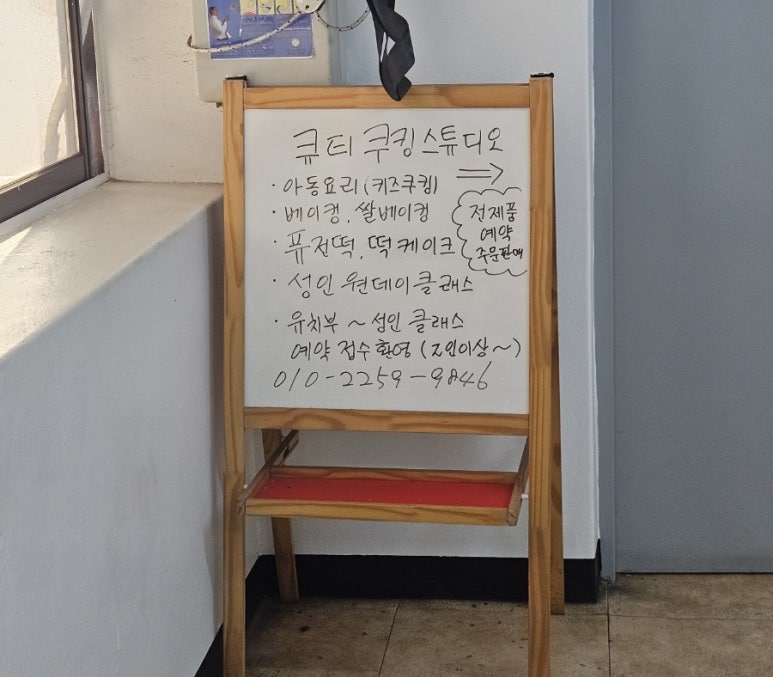 큐티 쿠킹스튜디오
· 아동요리 (키즈쿠킹)
· 베이킹, 쌀베이킹
· 퓨전떡, 떡케이크
전제품
예약
주문판매
· 성인 원데이클래스
· 유치부 ~ 성인 클래스
예약 접수 환영 (2인이상~)
010-2259-9846